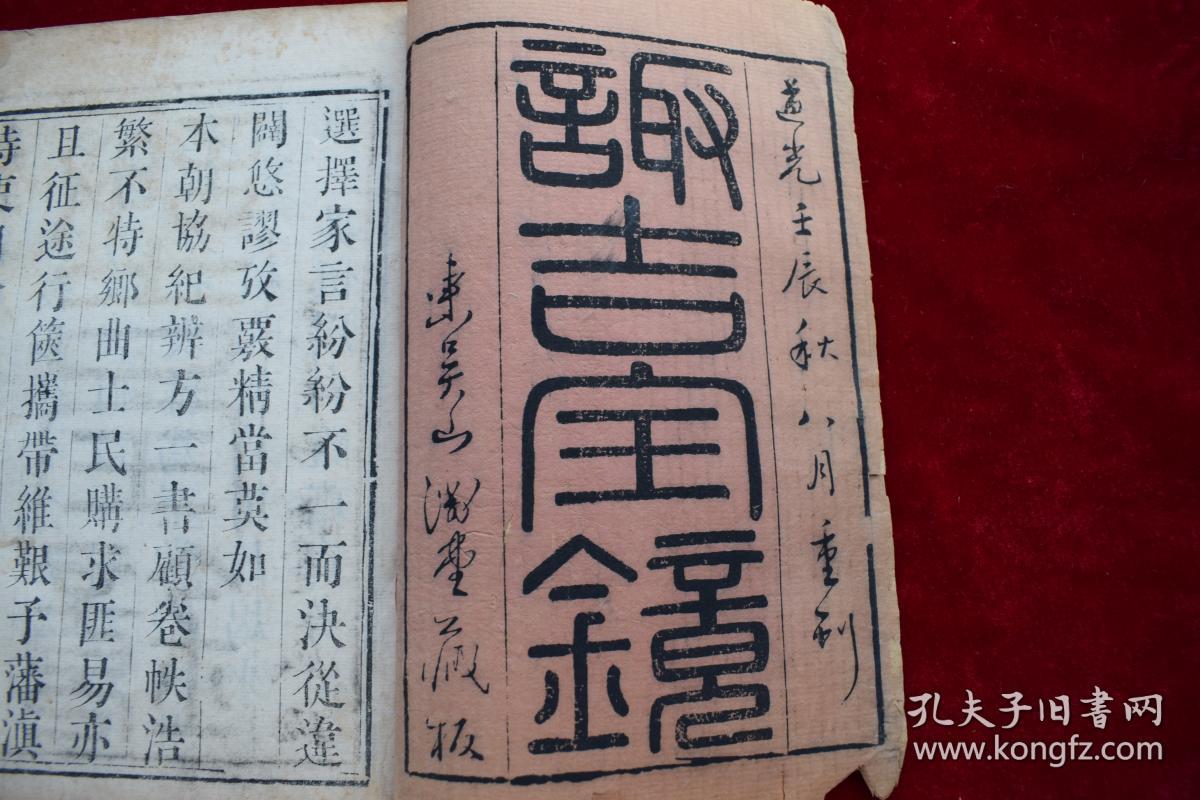 道光壬辰秋八月重刊
諏吉宝鏡
東吳山淵堂藏板
選擇家言紛紛不一而決從違
闢悠謬攷覈精當莫如
本朝協紀辨方一書顧卷帙浩
繁不特鄉曲士民購求匪易亦
且征途行篋攜帶維艱予藩滇
時
孔夫子旧书网
www.kongfz.com